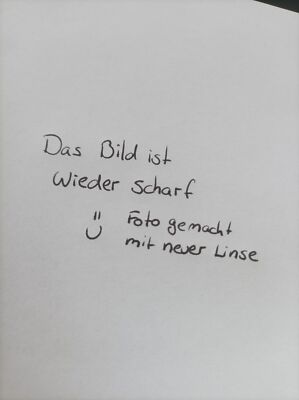 Das Bild ist
wieder scharf
Foto gemacht
mit neuer Linse